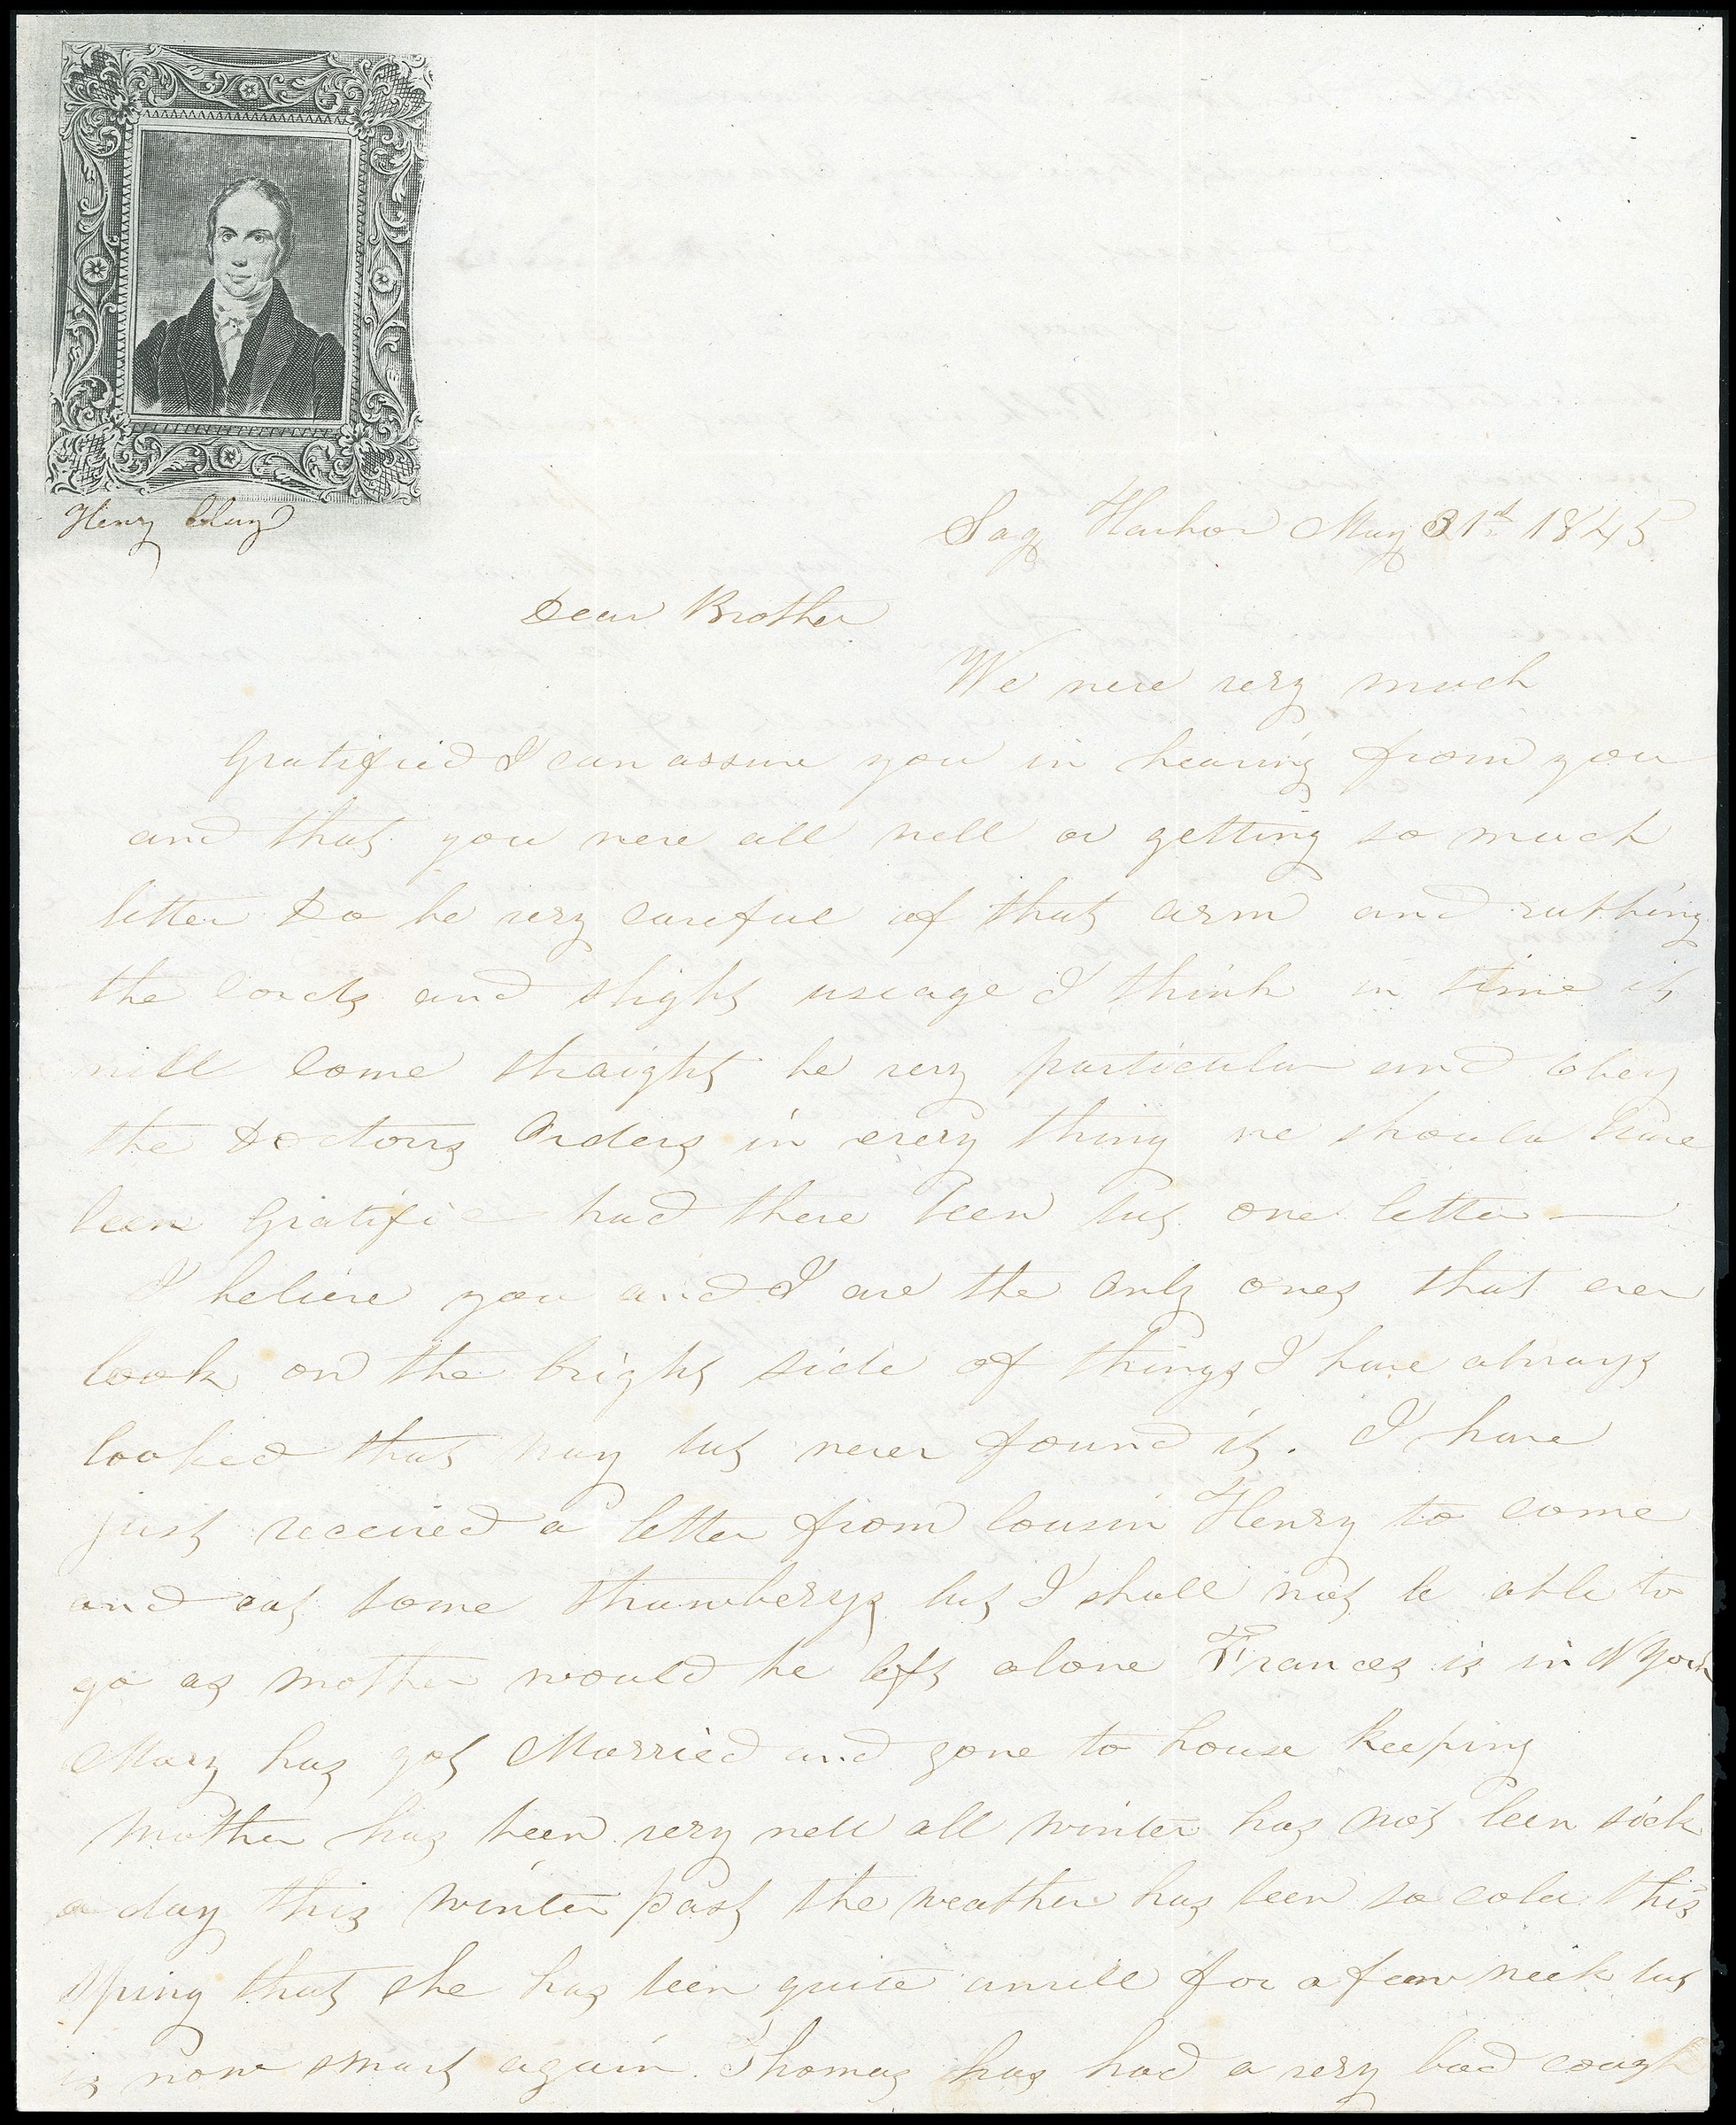 Henry Clay
Sag Harbor May 31st 1845
Dear Brother
We were very much
Gratified I can assure you in hearing from you
and that you were all well or getting so much
better Do be very careful of that arm and rubbing
the cords and slight useage I think in time it
will Come straight be very particular and obey
the Doctors Orders in every thing we should have
been Gratifie had there been but one letter —
I believe you and I are the Only ones that ever
look on the bright side of things I have always
looked that way but never found it. I have
just received a letter from Cousin Henry to come
and eat some strawberrys but I shall not be able to
go as mother would be left alone Frances is in N York
Mary has got Married and gone to house keeping
Mother has been very well all winter has not been sick
a day this winter past the weather has been so cold this
Spring that She has been quite unwell for a few week but
is now smart again Thomas has had a very bad cough